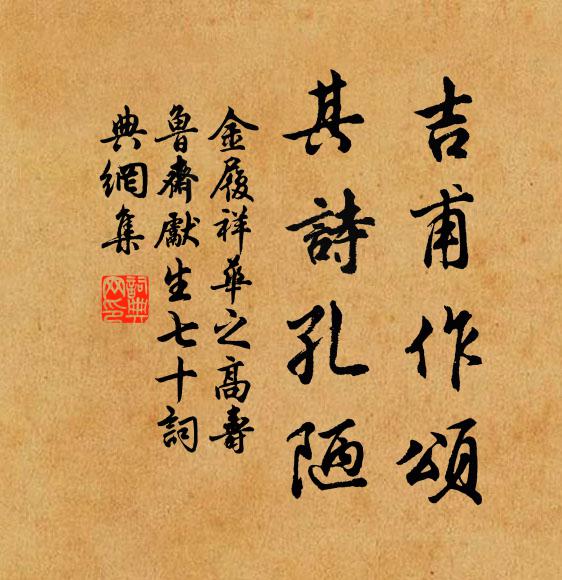 吉甫作頌
其詩孔陋
金履祥華之高壽
魯齋獻生七十詞
典網集
詞典網印